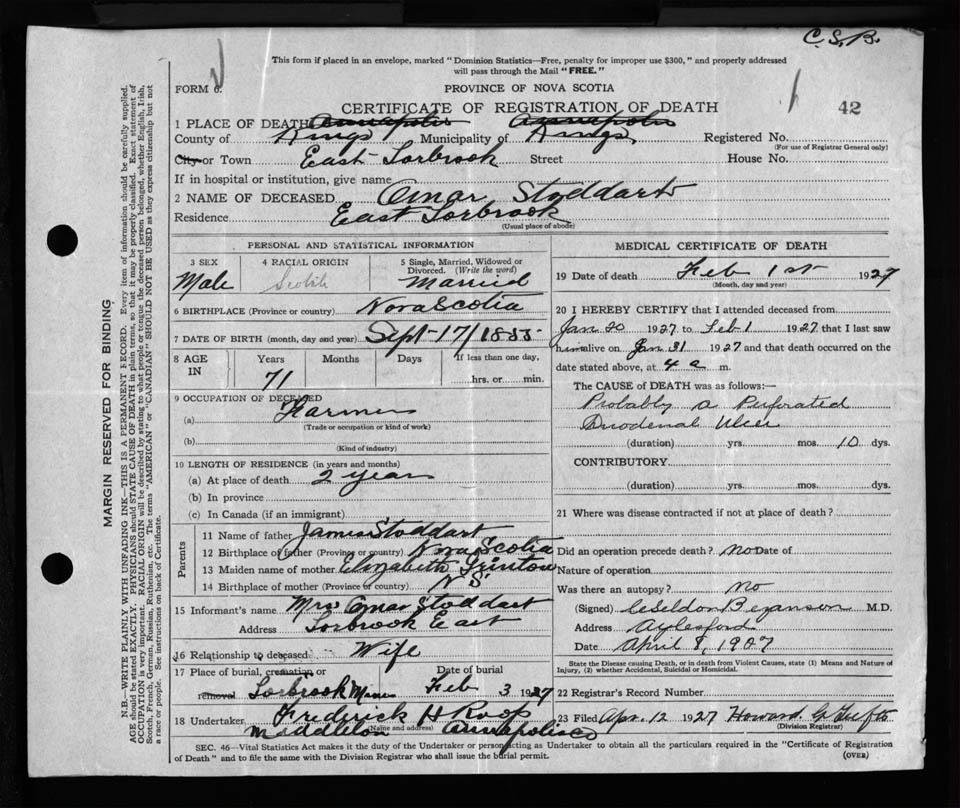 C.S.B.
This form if placed in an envelope, marked "Dominion Statistics—Free, penalty for improper use $300," and properly addressed
will pass through the Mail "FREE."
FORM 6.
PROVINCE OF NOVA SCOTIA
CERTIFICATE OF REGISTRATION OF DEATH
42
1 PLACE OF DEATH Annapolis Annapolis
County of Kings Municipality of Kings Registered No.
(For use of Registrar General only)
City or Town East Torbrook Street House No.
If in hospital or institution, give name
2 NAME OF DECEASED Omar Stoddart
Residence East Torbrook
(Usual place of abode)
PERSONAL AND STATISTICAL INFORMATION
3 SEX Male
4 RACIAL ORIGIN Scotch
5 Single, Married, Widowed or
Divorced. (Write the word)
Married
6 BIRTHPLACE (Province or country) Nova Scotia
7 DATE OF BIRTH (month, day and year) Sept-17/1855
8 AGE IN
Years Months Days If less than one day,
71 hrs. or min.
9 OCCUPATION OF DECEASED
(a) Farmer
(Trade or occupation or kind of work)
(b)
(Kind of industry)
10 LENGTH OF RESIDENCE (in years and months)
(a) At place of death 2 years
(b) In province
(c) In Canada (if an immigrant)
Parents
11 Name of father James Stoddart
12 Birthplace of father (Province or country) Nova Scotia
13 Maiden name of mother Elizabeth
14 Birthplace of mother (Province or country) N S.
15 Informant's name Mrs Omar Stoddart
Address Torbrook East
16 Relationship to deceased Wife
17 Place of burial, cremation or Date of burial
removal Torbrook Mines Feb 3 1927
18 Undertaker Frederick H Roop
(Name and address)
Middleton Annapolis Co
MEDICAL CERTIFICATE OF DEATH
19 Date of death Feb 1st 1927
(Month, day and year)
20 I HEREBY CERTIFY that I attended deceased from
Jan 20 1927 to Feb 1 1927 that I last saw
him alive on Jan 31 1927 and that death occurred on the
date stated above, at 4 a m.
The CAUSE of DEATH was as follows:—
Probably a Perforated
Duodenal Ulcer
(duration) yrs. mos. 10 dys.
CONTRIBUTORY
(duration) yrs. mos. dys.
21 Where was disease contracted if not at place of death?
Did an operation precede death? no Date of
Nature of operation
Was there an autopsy? No
(Signed) Bezanson M.D.
Address Aylesford
Date April 8, 1907
State the Disease causing Death, or in death from Violent Causes, state (1) Means and Nature of
Injury, (2) whether Accidental, Suicidal or Homicidal.
22 Registrar's Record Number
23 Filed Apr. 12 1927 Howard G Tufts
(Division Registrar)
SEC. 46—Vital Statistics Act makes it the duty of the Undertaker or person acting as Undertaker to obtain all the particulars required in the "Certificate of Registration
of Death" and to file the same with the Division Registrar who shall issue the burial permit. (OVER)
MARGIN RESERVED FOR BINDING
N.B.—WRITE PLAINLY WITH UNFADING INK—THIS IS A PERMANENT RECORD. Every item of information should be carefully supplied.
AGE should be stated EXACTLY. PHYSICIANS should STATE CAUSE OF DEATH in plain terms, so that it may be properly classified. Exact statement of
OCCUPATION is very important. RACIAL ORIGIN will be described by stating to what people or tongue the deceased person belonged, whether English, Irish,
Scotch, French, German, Russian, Ruthenian, etc. The terms "AMERICAN" or "CANADIAN" SHOULD NOT BE USED as they express citizenship but not
a race or people. See instructions on back of Certificate.